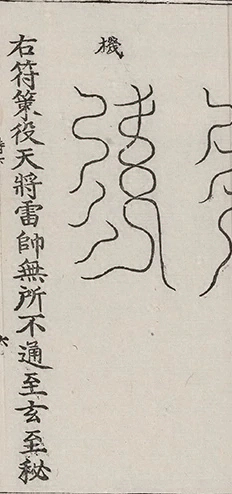 機
右符策役天將雷帥無所不通至玄至秘